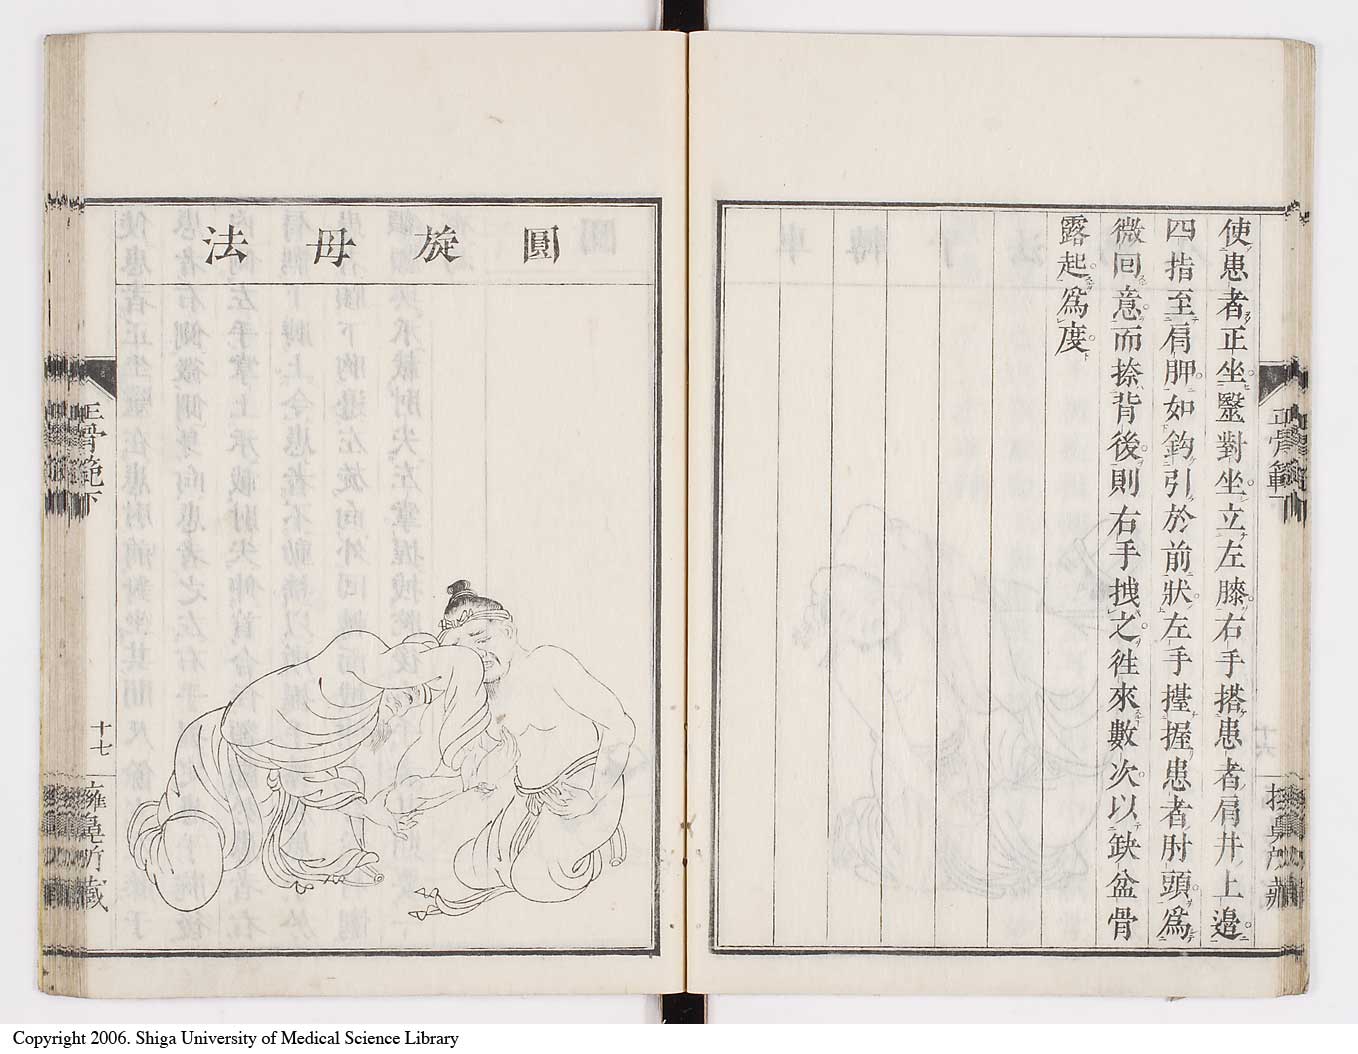 使患者正坐毉對坐立左膝右手搭患者肩井上邉
四指至肩胛如鈎引於前狀左手握患者肘頭爲
微回意而捺背後則右手拽之徃來數次以缺盆骨
露起爲度
正骨範
圓旋母法
正骨範下
十七
藏
Copyright 2006. Shiga University of Medical Science Library